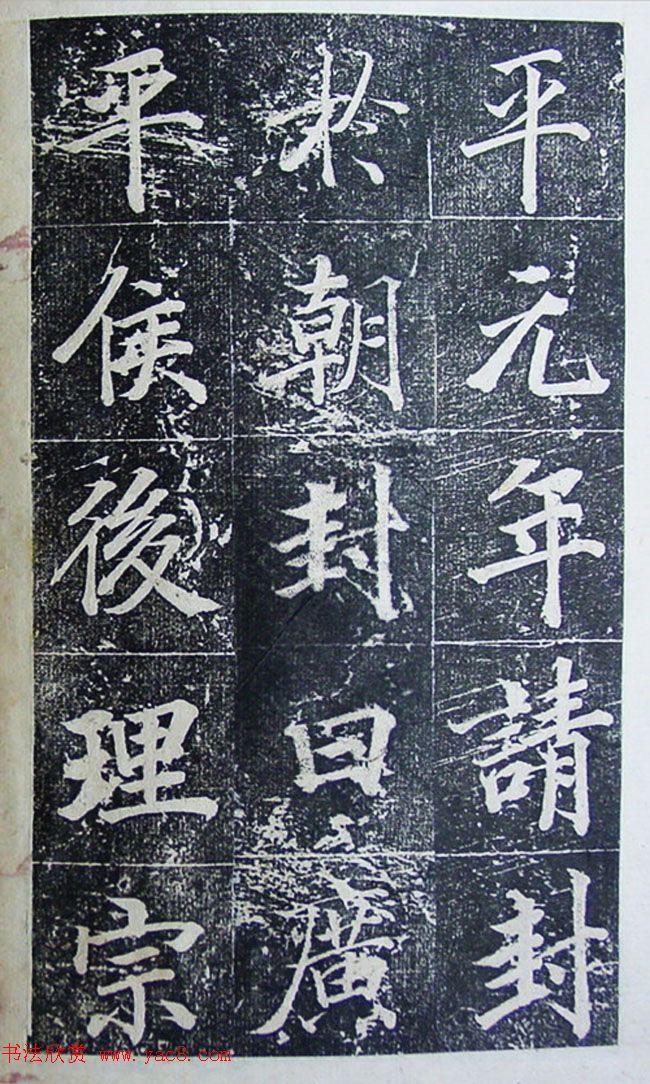 平元年請封
於朝封曰廣
平侯後理宗
书法欣赏 www.yac8.com